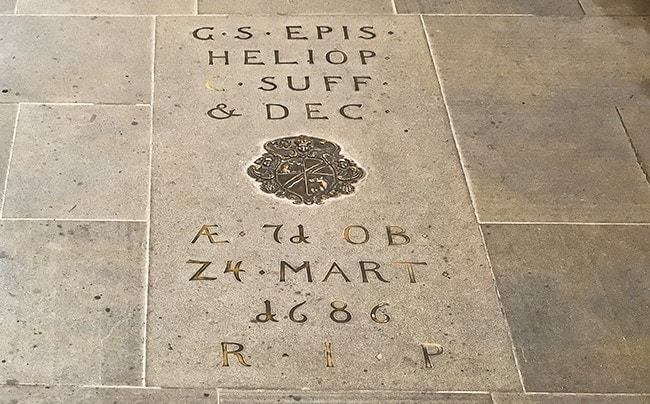 G · S · EPIS ·
HELIOP ·
C · SUFF ·
& DEC ·
Æ · 71 OB
24 · MART ·
1686 ·
R · I · P